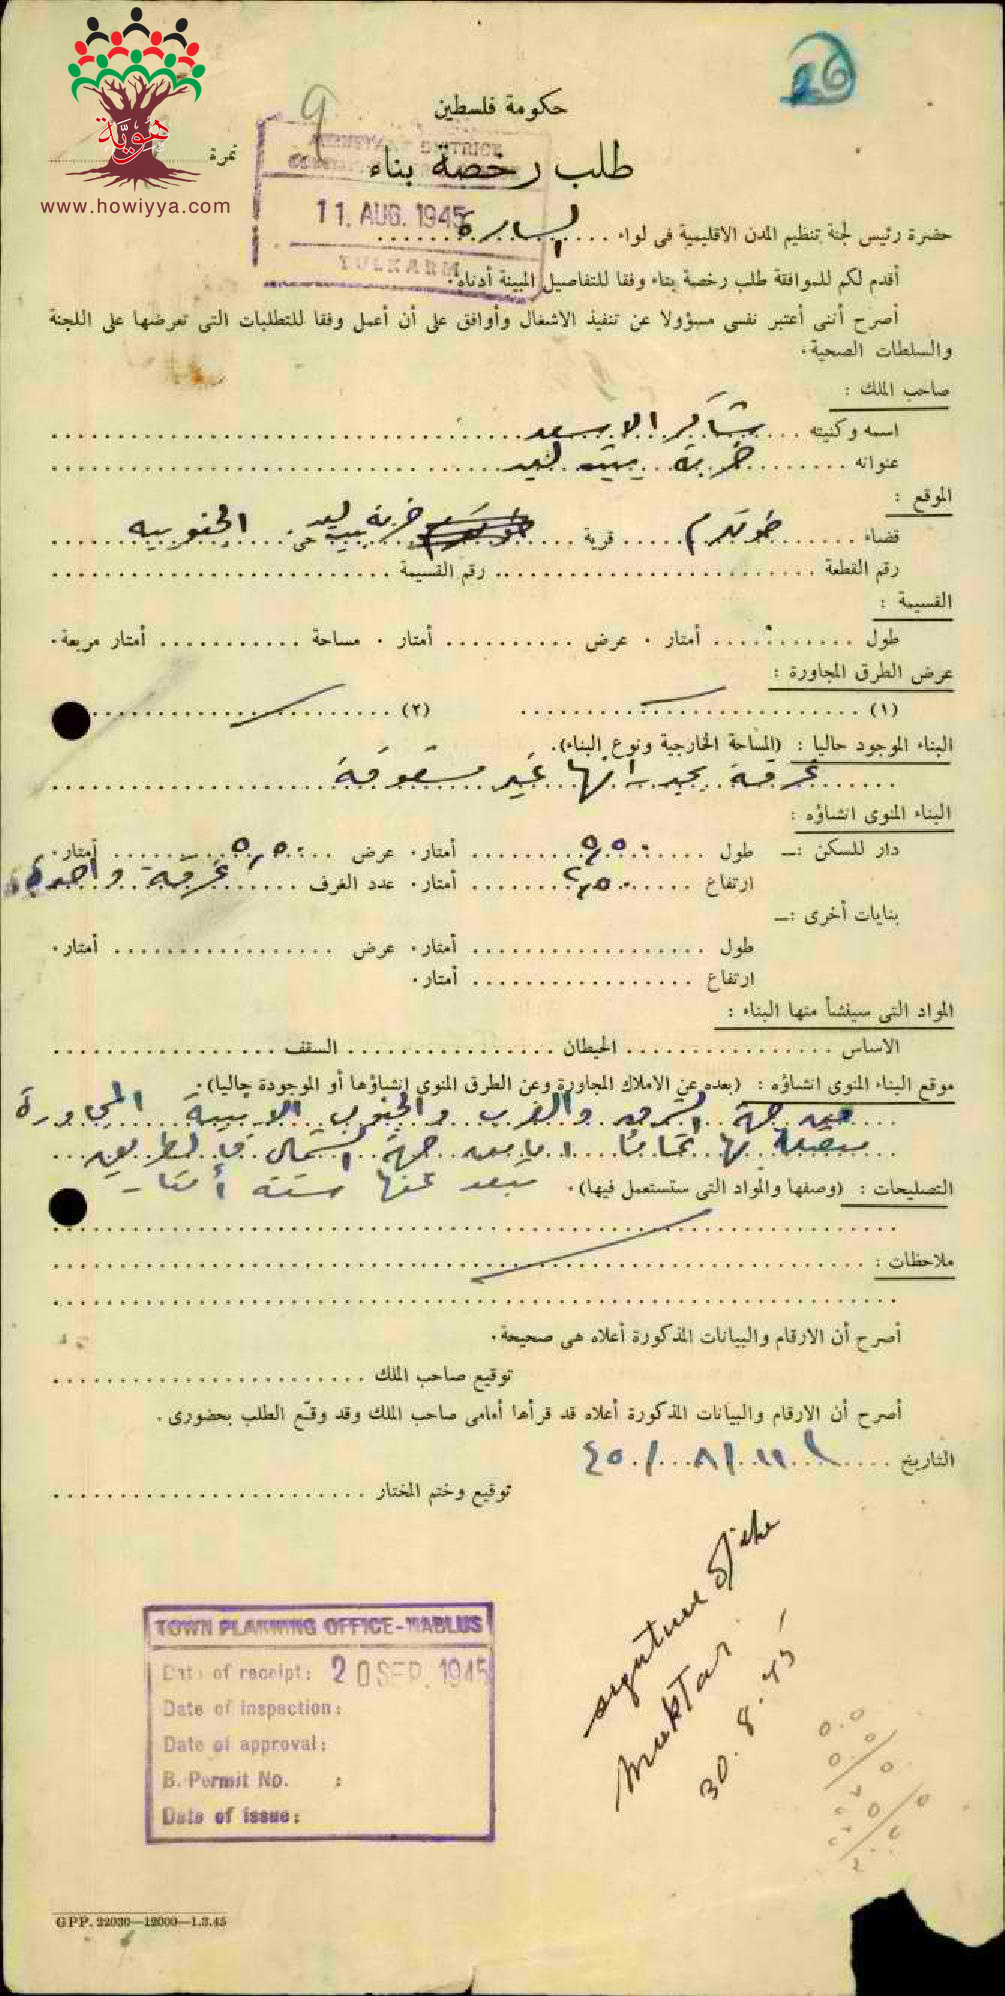 26
9
حكومة فلسطين
طلب رخصة بناء
نمرة
هوية
www.howiyya.com
11. AUG. 1945
TULKARM
حضرة رئيس لجنة تنظيم المدن الاقليمية في لواء السامرة
أقدم لكم للموافقة طلب رخصة بناء وفقا للتفاصيل المبينة أدناه.
أصرح أننى أعتبر نفسى مسؤولا عن تنفيذ الاشغال وأوافق على أن أعمل وفقا للمتطلبات التى تعرضها على اللجنة
والسلطات الصحية.
صاحب الملك :
اسمه وكنيته شاكر الاسعد
عنوانه خربة بيت ليد
الموقع :
قضاء طولكرم قرية خربة بيت ليد حى الجنوبيه
رقم القطعة رقم القسيمة
القسيمة :
طول أمتار . عرض أمتار . مساحة أمتار مربعة.
عرض الطرق المجاورة :
(١) (٢)
البناء الموجود حاليا : (المساحة الخارجية ونوع البناء).
غرفة بجدرانها غير مسقوفة
البناء المنوى انشاؤه :
دار للسكن :— طول ٥,٥٠ أمتار. عرض ٥,٥٠ أمتار.
ارتفاع أمتار. عدد الغرف غرفة واحدة
بنايات أخرى :—
طول أمتار. عرض أمتار.
ارتفاع أمتار.
المواد التى سينشأ منها البناء :
الاساس الحيطان السقف
موقع البناء المنوى انشاؤه : (بعده عن الاملاك المجاورة وعن الطرق المنوى انشاؤها أو الموجودة حاليا).
من جهة الشرق والغرب والجنوب الابنية المجاورة
متصلة بها تماما اما من جهة الشمال فالطريق
التصليحات : (وصفها والمواد التى ستستعمل فيها). تبعد عنها ستة أمتار
ملاحظات :
أصرح أن الارقام والبيانات المذكورة أعلاه هى صحيحة.
توقيع صاحب الملك
أصرح أن الارقام والبيانات المذكورة أعلاه قد قرأها أمامى صاحب الملك وقد وقّع الطلب بحضورى.
التاريخ ١١/٨/٤٥
توقيع وختم المختار
signature of the
Muktar
30.8.45
TOWN PLANNING OFFICE-NABLUS
Date of receipt: 20 SEP. 1945
Date of inspection:
Date of approval:
B. Permit No. :
Date of issue:
GPP. 22030—12000—1.3.45